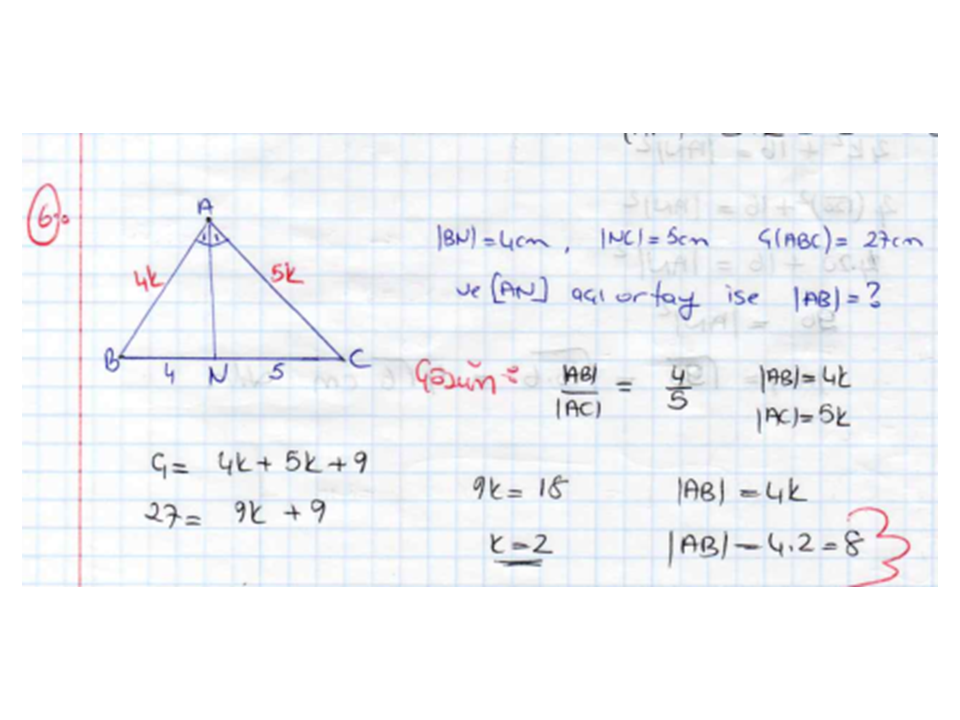 6:
A
4k
5k
B
4
N
5
C
|BN|=4cm, |NC|=5cm Ç(ABC)=27cm
ve [AN] açıortay ise |AB|=?
Çözüm:
|AB| / |AC| = 4/5
|AB|=4k
|AC|=5k
Ç= 4k+5k+9
27= 9k+9
9k=18
k=2
|AB|=4k
|AB|=4.2=8